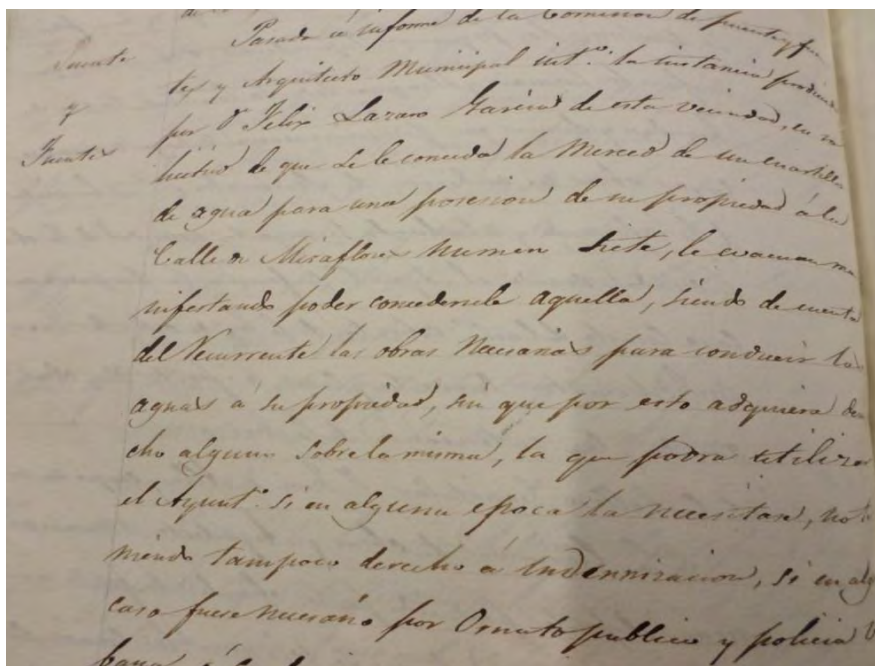 Pasada á informe de la Comision de puentes y fuen
Puente
y
Fuentes
tes y Arquitecto Municipal int.º la instancia producida
por D. Felix Lazaro Garcia de esta vecindad, en so
licitud de que se le conceda la Merced de un cuartillo
de agua para una posesion de su propiedad á la
Calle de Miraflores numero Siete, le evacuan ma
nifestando poder concedersele aquella, siendo de cuenta
del Recurrente las obras necesarias para conducir las
aguas á su propiedad, sin que por esto adquiera dere
cho alguno sobre la misma, la que podra utilizar
el Ayunt.º si en alguna epoca la necesitare, no te
niendo tampoco derecho á Indennizacion, si en algun
caso fuese necesario por Ornato publico y policia